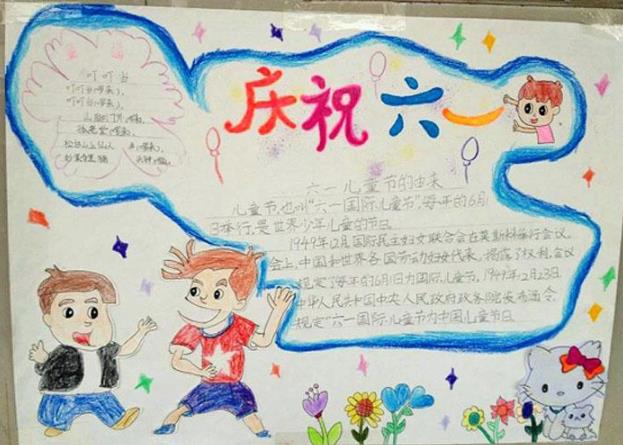 童谣
叮叮当
叮叮当(啰来),
叮叮当(啰来),
庆祝六一
六一儿童节的由来
儿童节,也叫“六一国际儿童节”,每年的6月1
日举行,是世界少年儿童的节日。
1949年12月国际民主妇女联合会在莫斯科举行会议。
会上,中国和世界各国劳动妇女代表,揭露了权利,会议
规定了每年的6月1日为国际儿童节。1949年12月23日
中华人民共和国中央人民政府政务院发布通令,
规定“六一国际儿童节为中国儿童节日